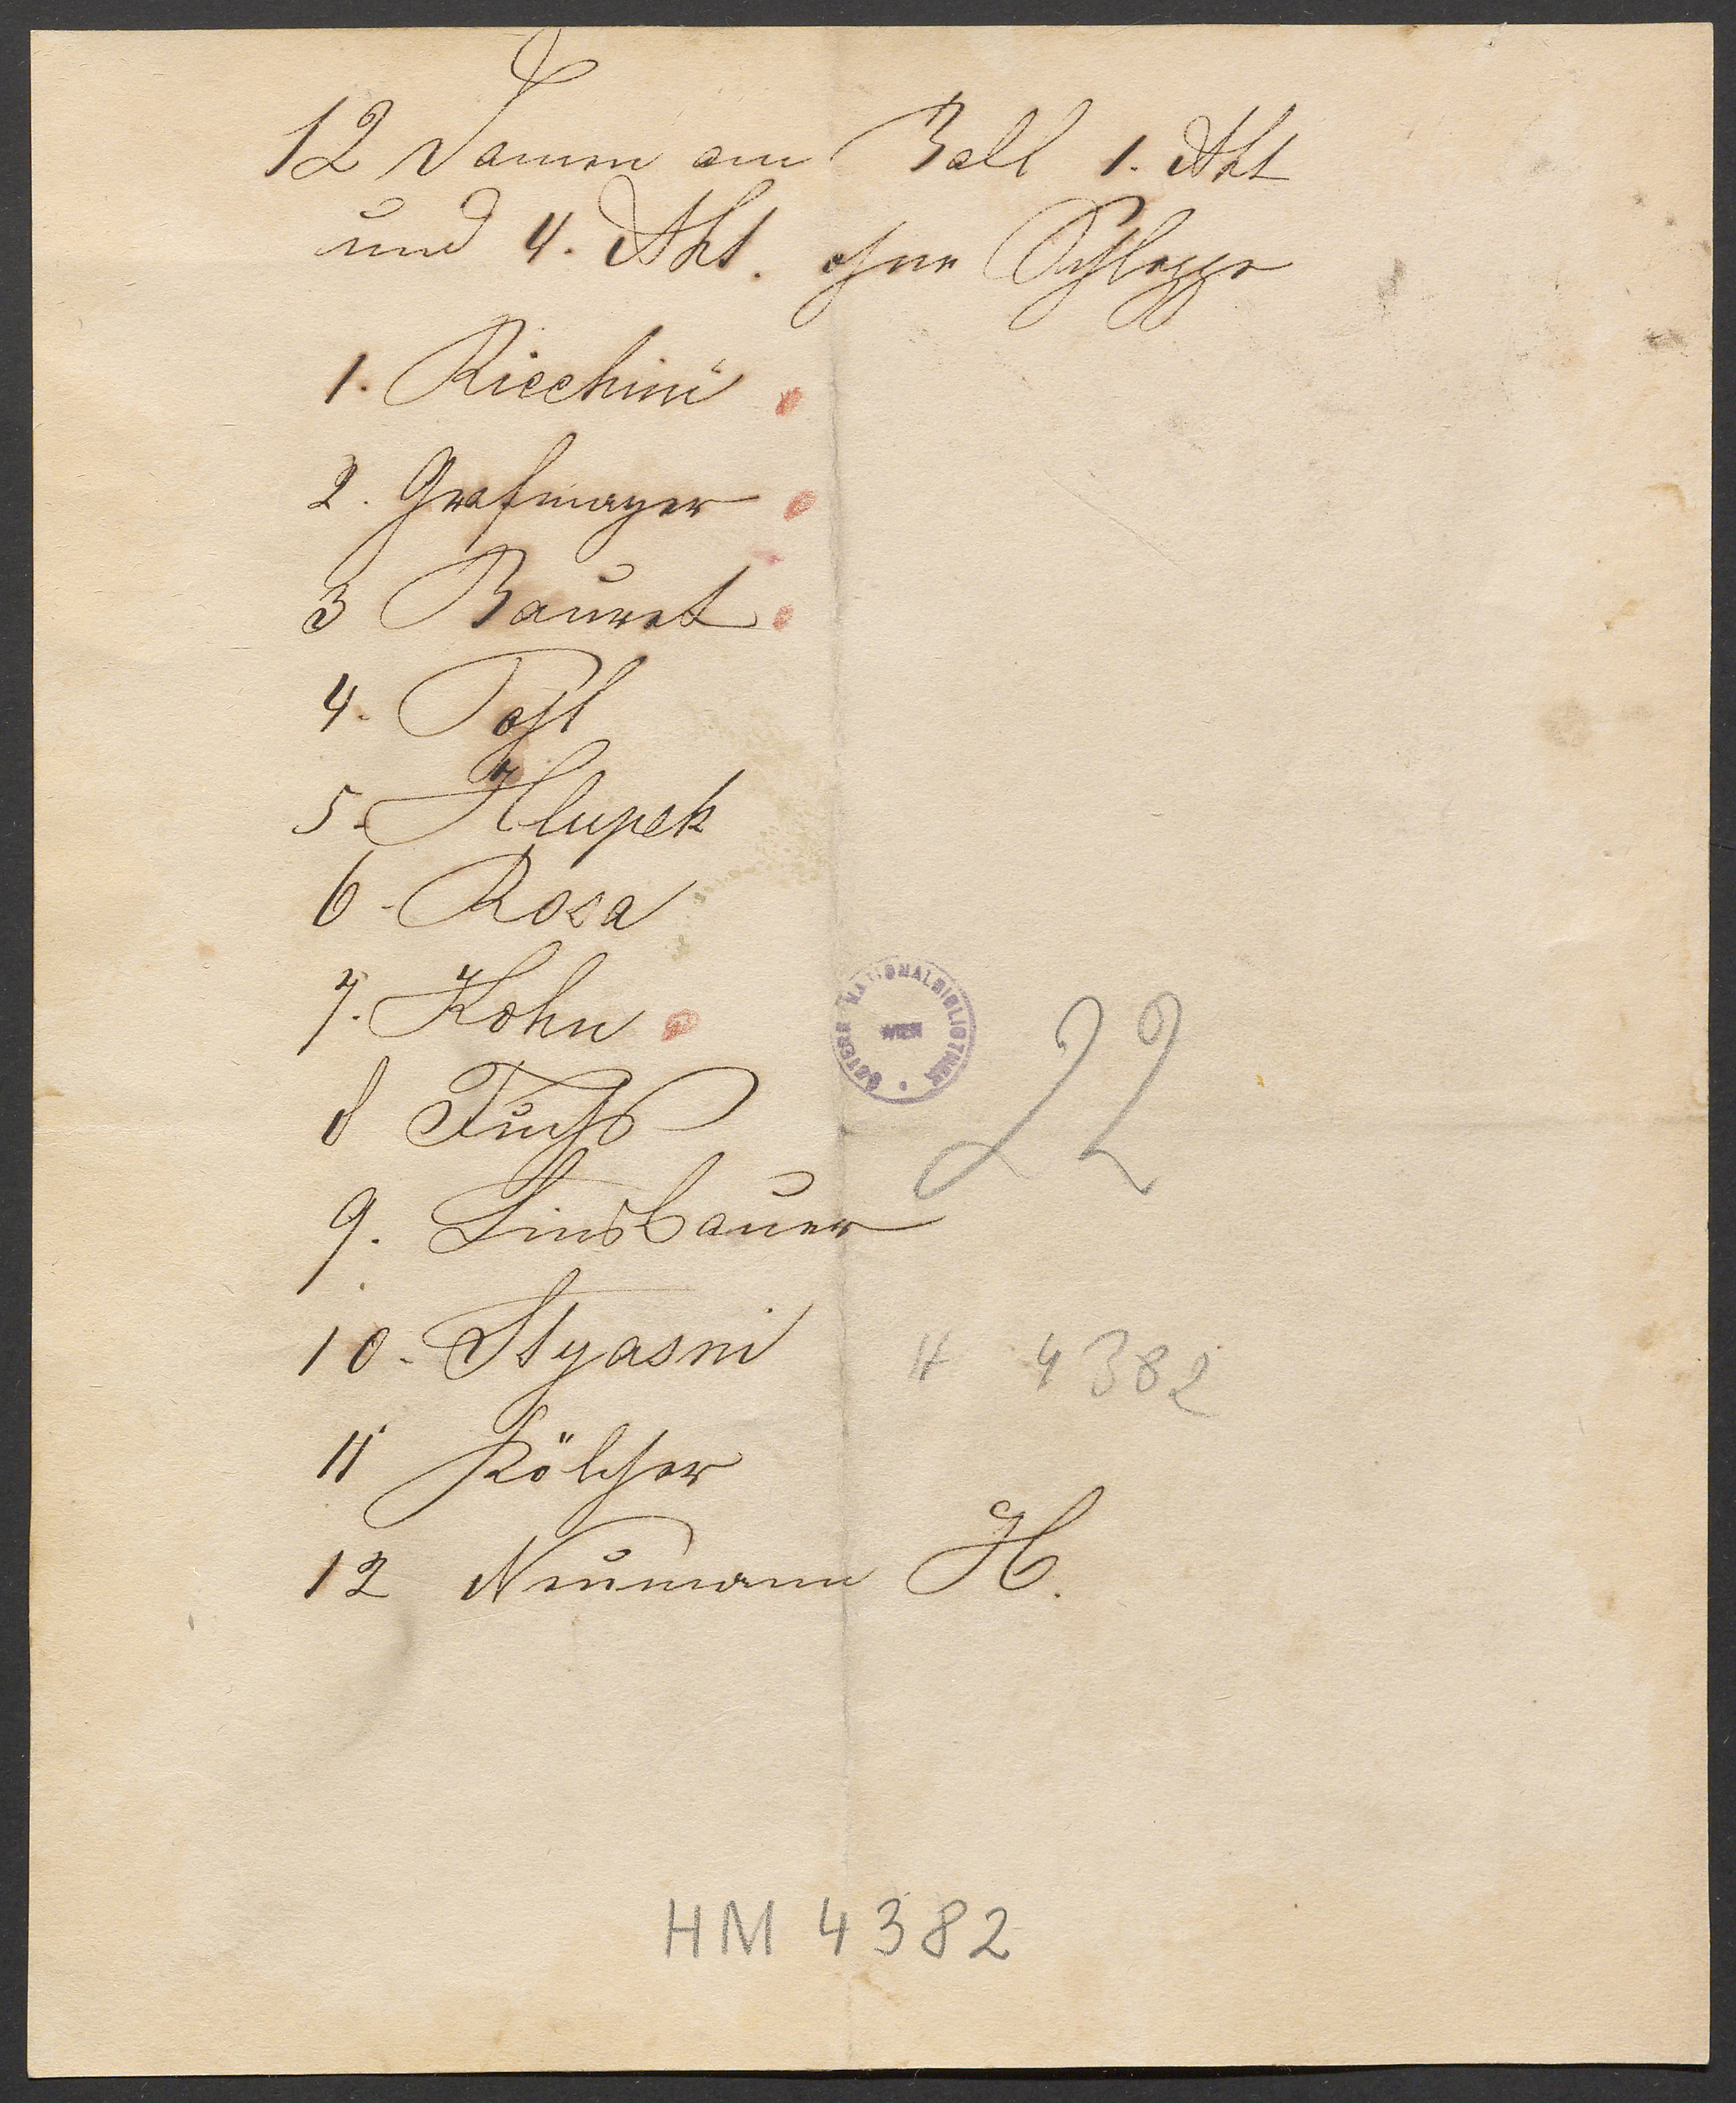 12 Damen am Ball 1. Akt
und 4. Akt. ohne Schleppe
1. Ricchini
2. Grafmayer
3 Bauret
4. Pohl
5. Hlupek
6. Rosa
7. Kohn
8 Fuchs
9. Linsbauer
10. Styasni
11 Kölcher
12 Neumann H.
ÖSTERR. NATIONALBIBLIOTHEK
WIEN
22
H 4382
HM 4382